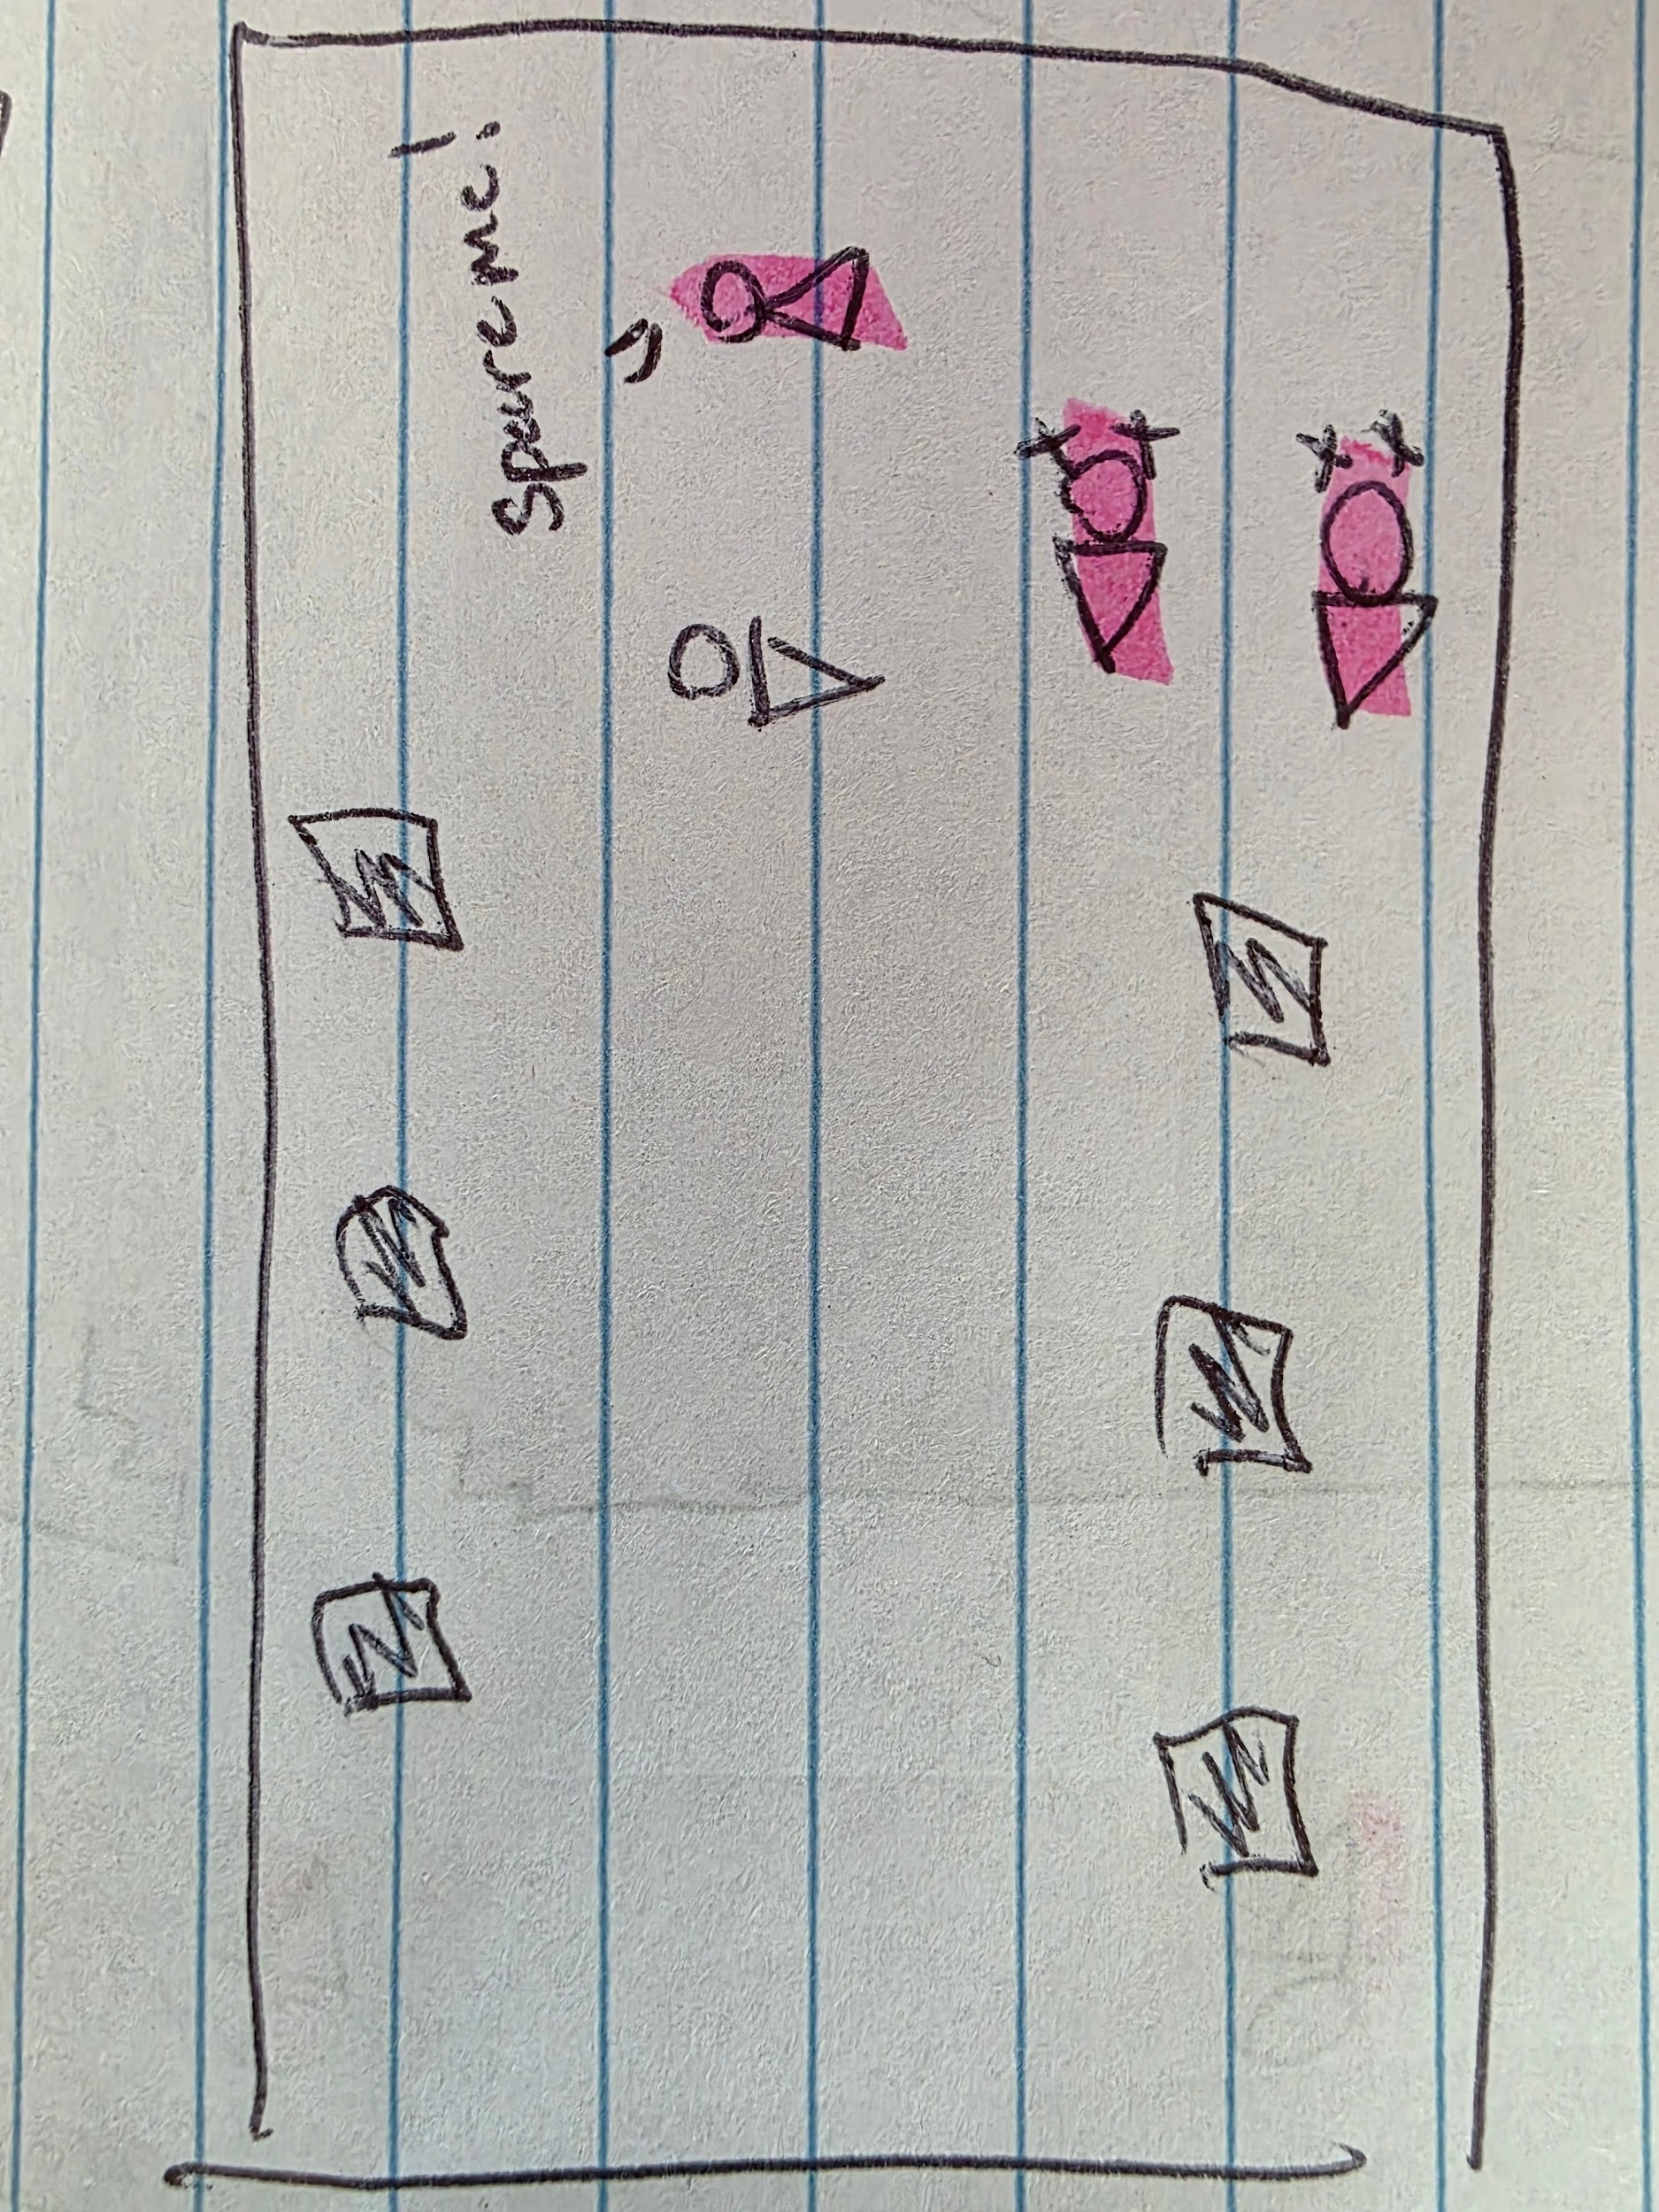 Spare me!